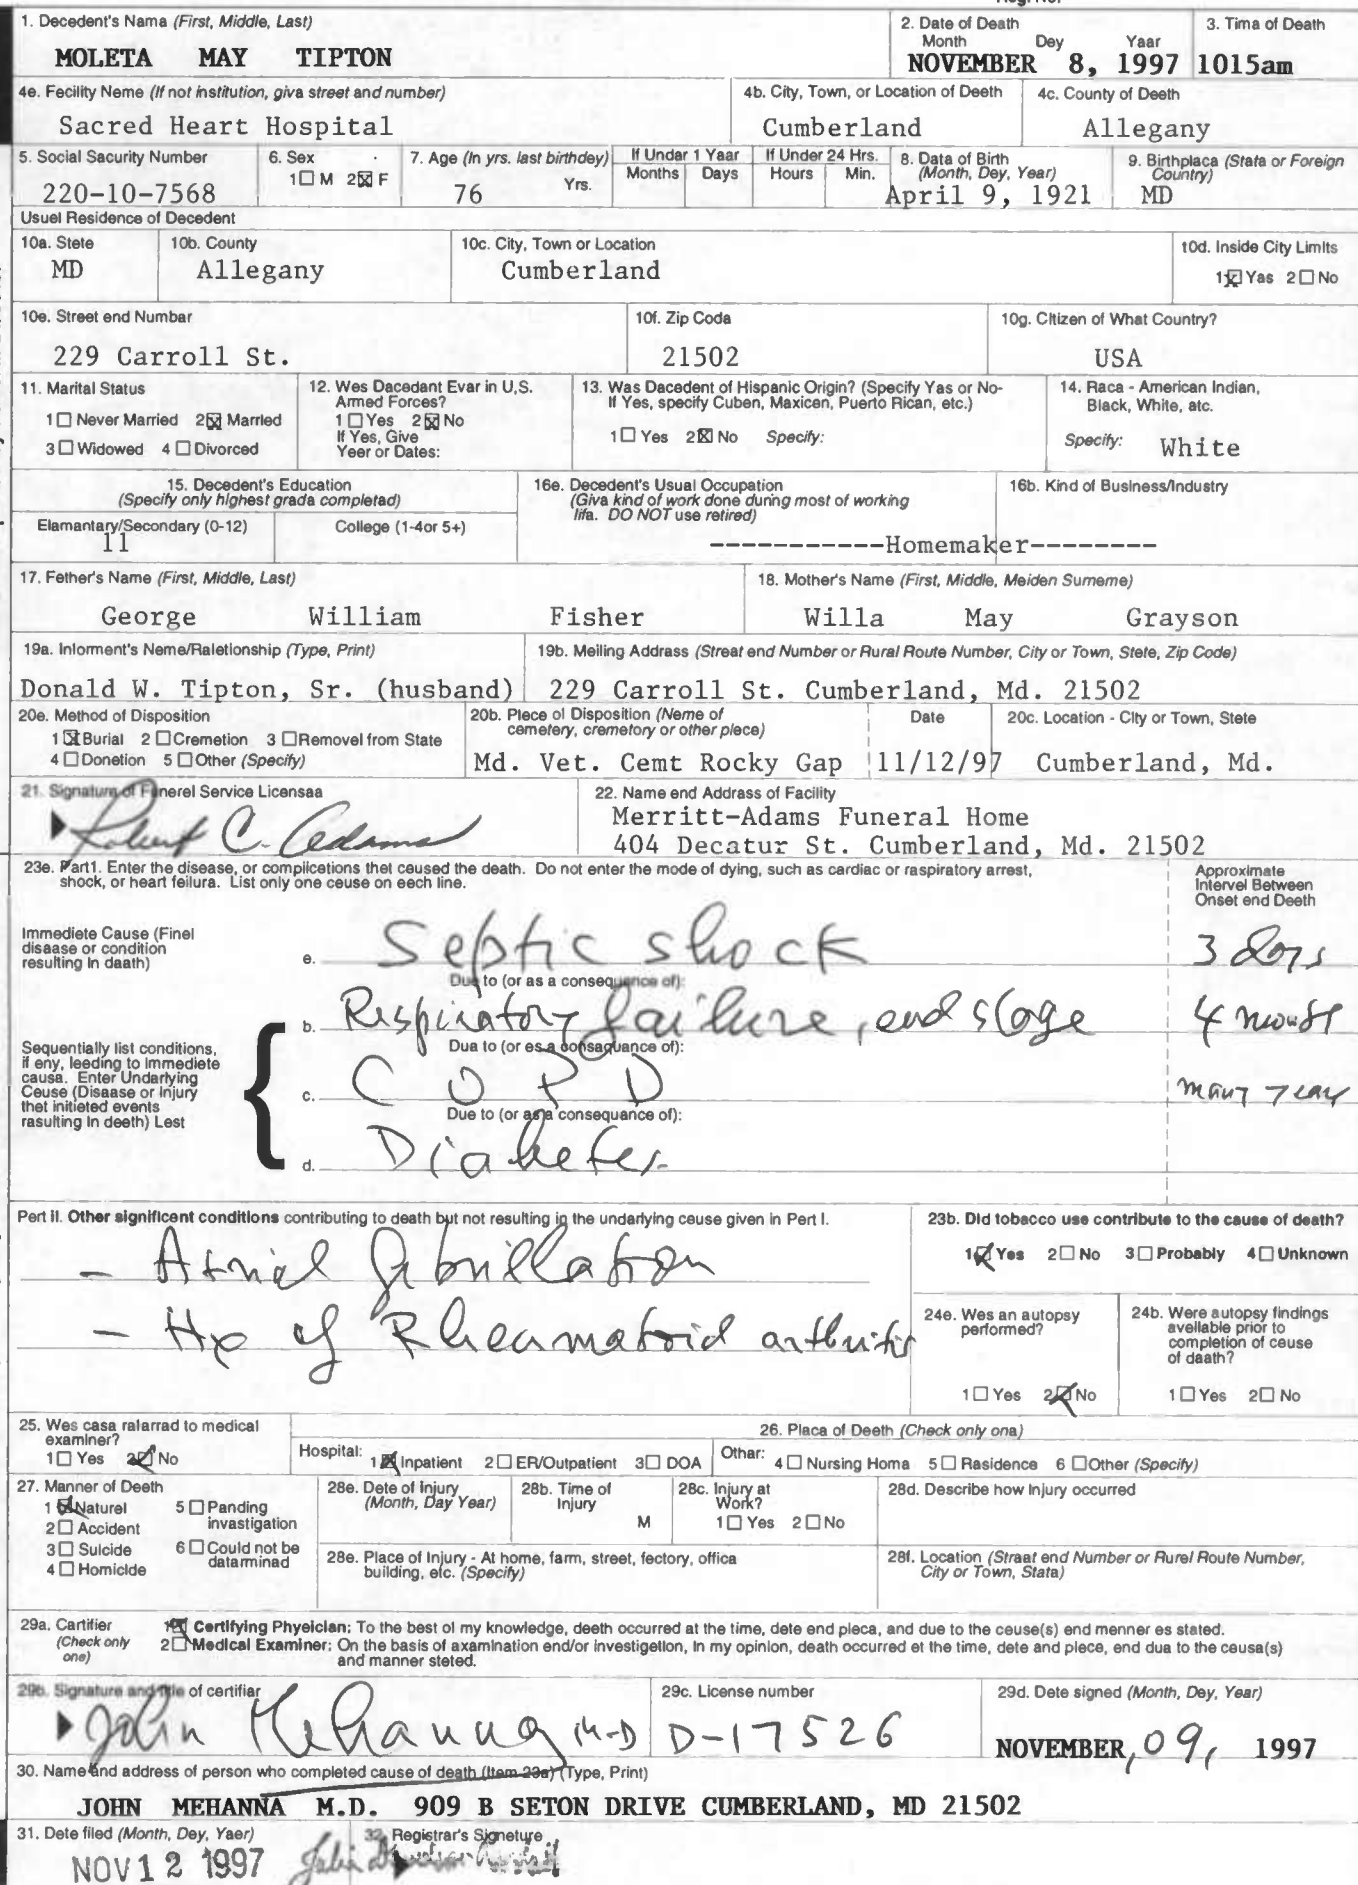 1. Decedent's Name (First, Middle, Last)
MOLETA MAY TIPTON
2. Date of Death
Month Dey Yaar
NOVEMBER 8, 1997
3. Tima of Death
1015am
4e. Fecility Name (If not institution, giva street and number)
Sacred Heart Hospital
4b. City, Town, or Location of Deeth
Cumberland
4c. County of Deeth
Allegany
5. Social Sacurity Number
220-10-7568
6. Sex
1☐ M 2☒ F
7. Age (In yrs. last birthdey)
76 Yrs.
If Under 1 Yaar
Months Days
If Under 24 Hrs.
Hours Min.
8. Data of Birth
(Month, Dey, Year)
April 9, 1921
9. Birthplaca (Stata or Foreign
Country)
MD
Usuel Residence of Decedent
10a. Stete
MD
10b. County
Allegany
10c. City, Town or Location
Cumberland
10d. Inside City Limits
1☒ Yas 2☐ No
10e. Street end Numbar
229 Carroll St.
10f. Zip Coda
21502
10g. Citizen of What Country?
USA
11. Marital Status
1☐ Never Married 2☒ Married
3☐ Widowed 4☐ Divorced
12. Wes Dacedant Evar in U.S.
Armed Forces?
1☐ Yes 2☒ No
If Yes, Give
Yeer or Dates:
13. Was Dacedent of Hispanic Origin? (Specify Yas or No-
If Yes, specify Cuben, Maxicen, Puerto Rican, etc.)
1☐ Yes 2☒ No Specify:
14. Raca - American Indian,
Black, White, atc.
Specify: White
15. Decedent's Education
(Specify only highest grada completad)
Elamantary/Secondary (0-12)
11
College (1-4or 5+)
16e. Decedent's Usual Occupation
(Giva kind of work done during most of working
lifa. DO NOT use retired)
16b. Kind of Business/Industry
------------Homemaker---------
17. Fether's Name (First, Middle, Last)
George William Fisher
18. Mother's Name (First, Middle, Meiden Surneme)
Willa May Grayson
19a. Informent's Neme/Raletionship (Type, Print)
Donald W. Tipton, Sr. (husband)
19b. Meiling Address (Streat end Number or Rural Route Number, City or Town, Stete, Zip Code)
229 Carroll St. Cumberland, Md. 21502
20e. Method of Disposition
1☒ Burial 2☐ Cremetion 3☐ Removel from State
4☐ Donetion 5☐ Other (Specify)
20b. Plece of Disposition (Neme of
cemetery, cremetory or other plece)
Md. Vet. Cemt Rocky Gap
Date
11/12/97
20c. Location - City or Town, Stete
Cumberland, Md.
21. Signature of Funerel Service Licensaa
Robert C. Adams
22. Name end Address of Facility
Merritt-Adams Funeral Home
404 Decatur St. Cumberland, Md. 21502
23e. Part1. Enter the disease, or complications thet caused the death. Do not enter the mode of dying, such as cardiac or raspiratory arrest,
shock, or heart feilura. List only one ceuse on eech line.
Approximate
Intervel Between
Onset end Deeth
Immediete Cause (Finel
disaase or condition
resulting in daath)
e. Septic shock
3 days
Due to (or as a consequence of):
b. Respiratory failure, end stage
4 month
Dua to (or es a consaquance of):
Sequentially list conditions,
if eny, leeding to immediete
causa. Enter Undarlying
Ceuse (Disaase or Injury
thet initieted events
rasulting in deeth) Lest
c. COPD
many year
Due to (or as a consequence of):
d. Diabetes
Pert II. Other significent conditions contributing to death but not resulting in the undarlying ceuse given in Pert I.
- Atrial fibrillation
- Hx of Rheumatoid arthritis
23b. Did tobacco use contribute to the cause of death?
1☒ Yes 2☐ No 3☐ Probably 4☐ Unknown
24e. Wes an autopsy
performed?
1☐ Yes 2☒ No
24b. Were autopsy findings
avellable prior to
completion of ceuse
of daath?
1☐ Yes 2☐ No
25. Wes casa ralarrad to medical
examiner?
1☐ Yes 2☒ No
26. Placa of Deeth (Check only ona)
Hospital: 1☒ Inpatient 2☐ ER/Outpatient 3☐ DOA
Othar: 4☐ Nursing Homa 5☐ Rasidence 6☐ Other (Specify)
27. Manner of Deeth
1☒ Naturel 5☐ Panding
invastigation
2☐ Accident
3☐ Suicide 6☐ Could not be
datarminad
4☐ Homicide
28e. Dete of Injury
(Month, Day Year)
28b. Time of
Injury
M
28c. Injury at
Work?
1☐ Yes 2☐ No
28d. Describe how Injury occurred
28e. Place of Injury - At home, farm, street, fectory, offica
building, etc. (Specify)
28f. Location (Straat end Number or Rurel Route Number,
City or Town, Stata)
29a. Cartifier
(Check only
one)
1☒ Certifying Phyeician: To the best of my knowledge, deeth occurred at the time, dete end pleca, and due to the ceuse(s) end menner es stated.
2☐ Medical Examiner: On the basis of axamination end/or investigetion, in my opinion, death occurred et the time, dete and plece, end dua to the ceusa(s)
and manner steted.
29b. Signature and title of certifiar
John Mehanna M.D
29c. License number
D-17526
29d. Dete signed (Month, Dey, Year)
NOVEMBER, 09, 1997
30. Name and address of person who completed cause of death (Item 23a) (Type, Print)
JOHN MEHANNA M.D. 909 B SETON DRIVE CUMBERLAND, MD 21502
31. Dete filed (Month, Dey, Yaer)
NOV 12 1997
32. Registrar's Signeture